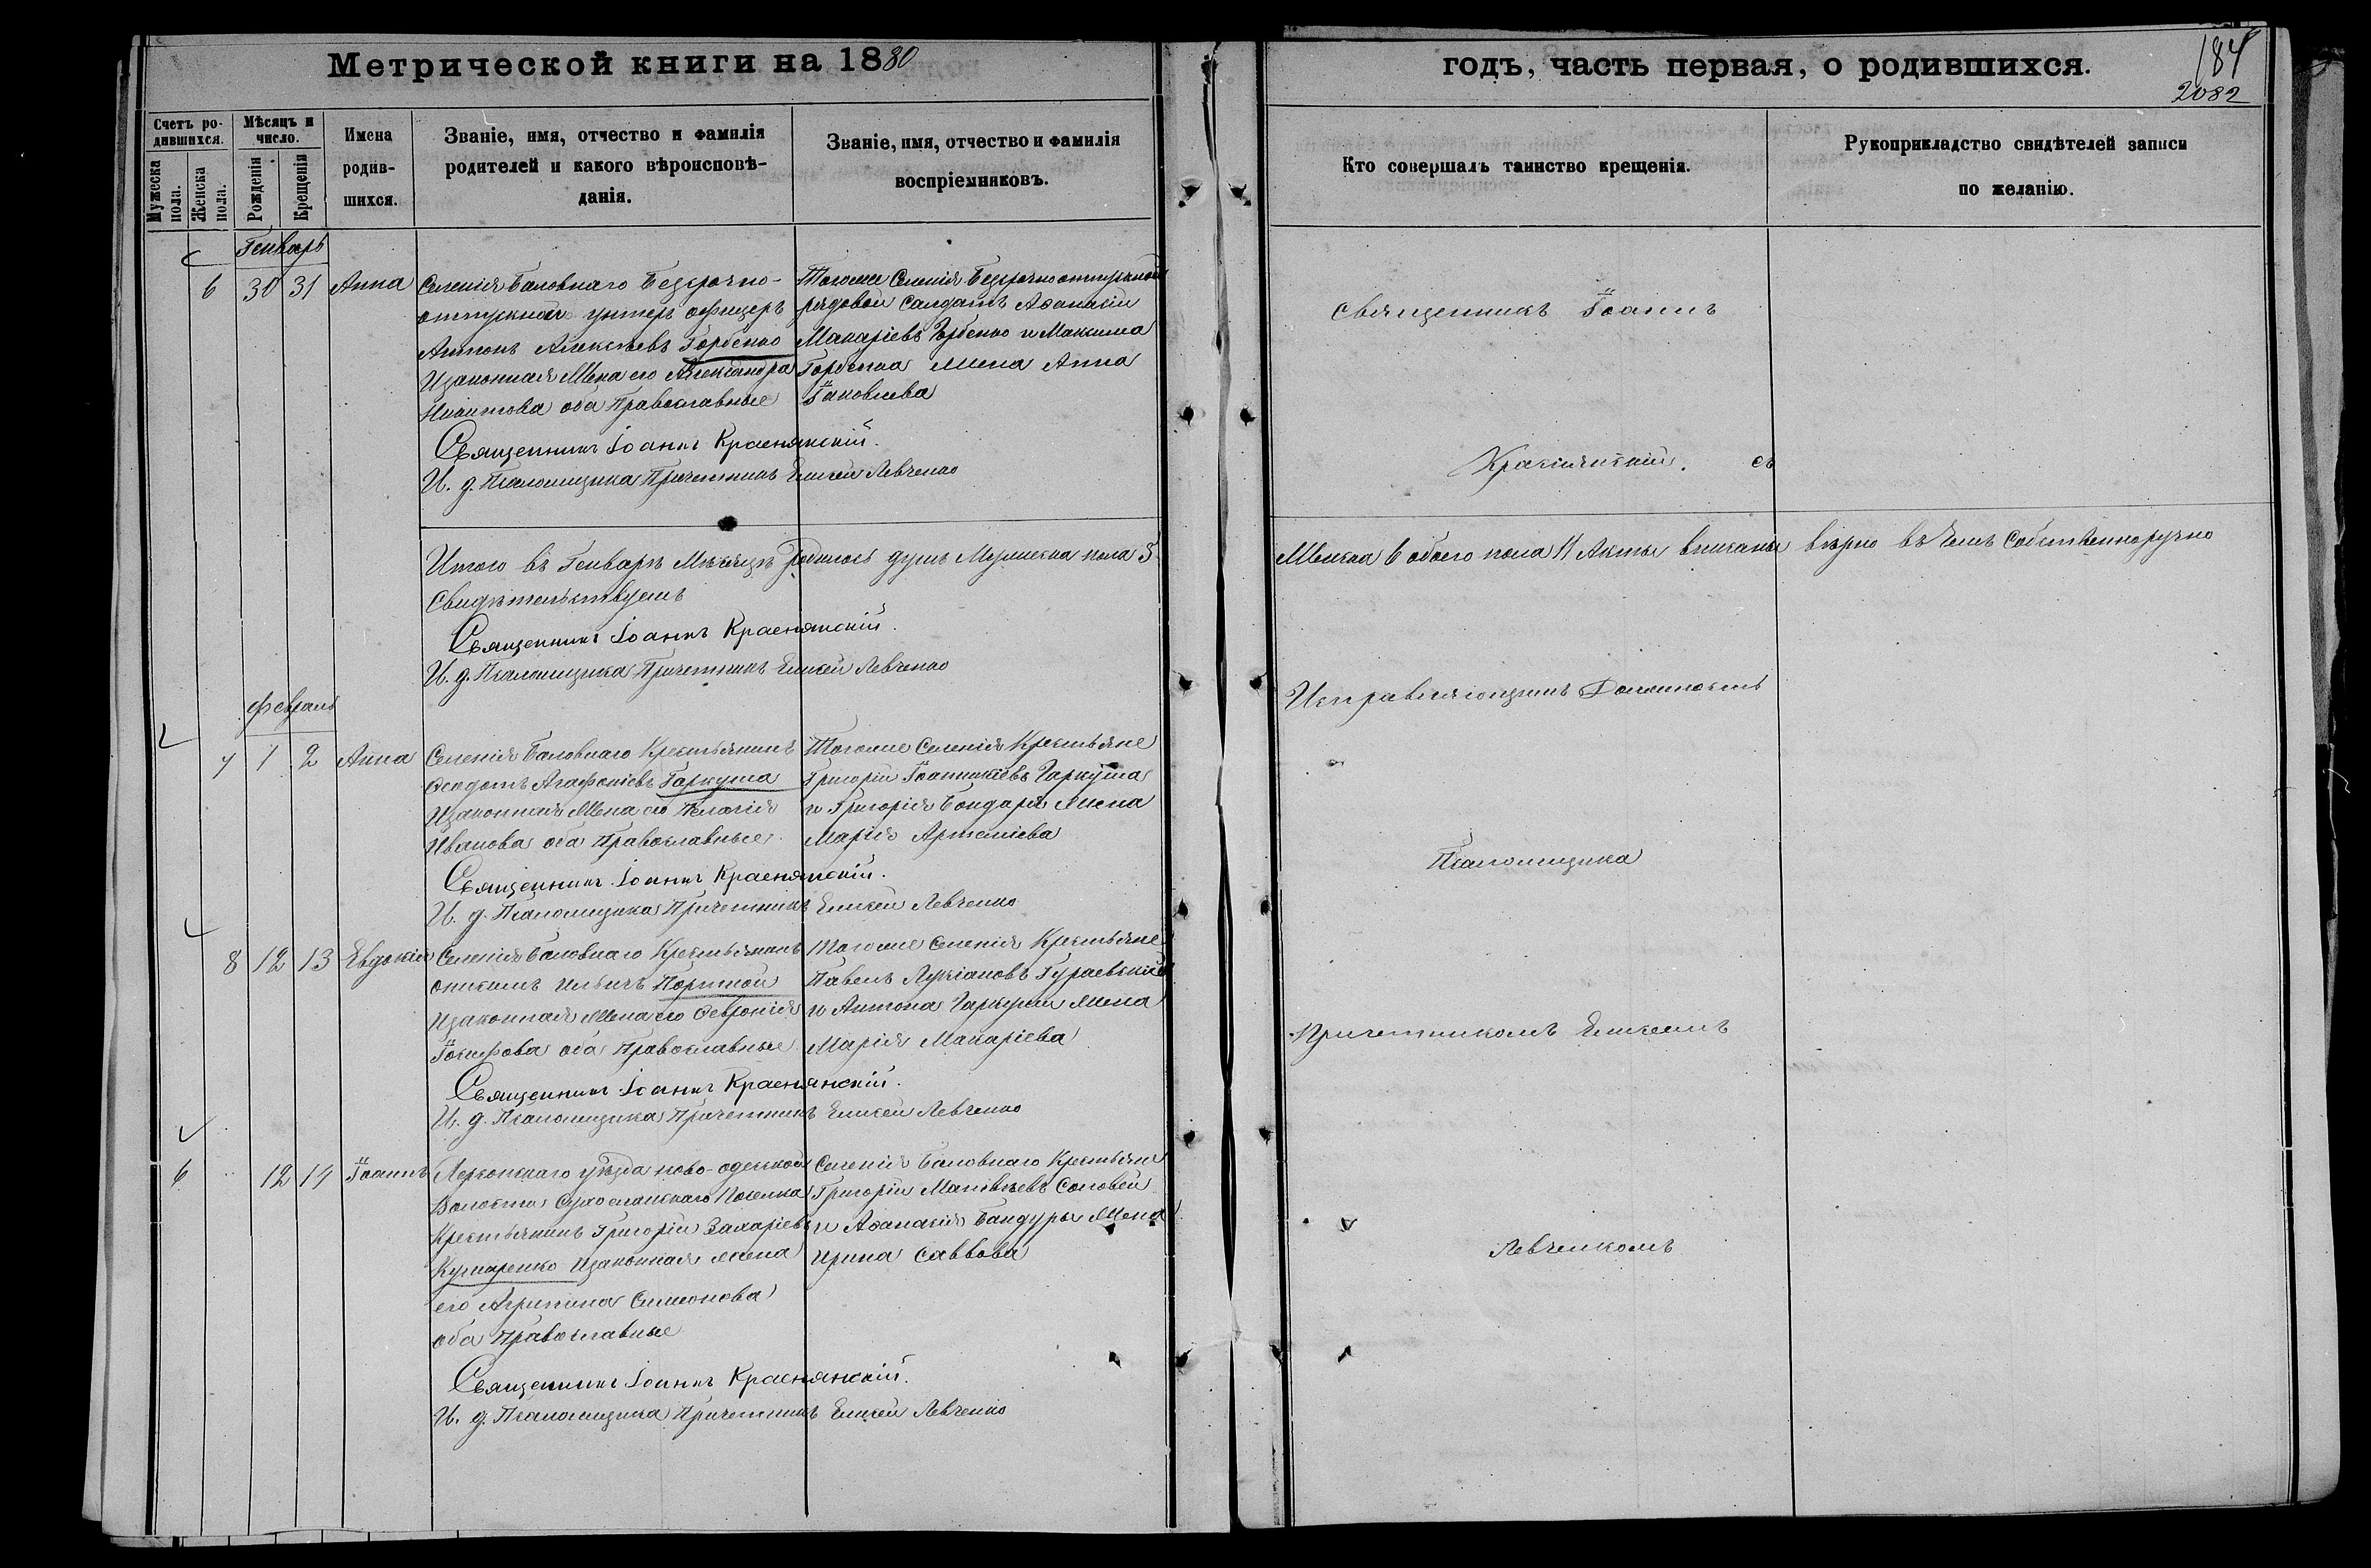 Метрической книги на 1880
годъ, часть первая, о родившихся.
184
2082
Счетъ ро-
дившихся.
Мужеска
пола.
Женска
пола.
Мѣсяцъ и
число.
Рожденія
Крещенія
Имена
родив-
шихся.
Званіе, имя, отчество и фамилія
родителей и какого вѣроисповѣ-
данія.
Званіе, имя, отчество и фамилія
воспріемниковъ.
Кто совершалъ таинство крещенія.
Рукоприкладство свидѣтелей записи
по желанію.
Генварь
6 30 31 Анна
Селенія Баловнаго Безсрочно-
отпускной унтеръ офицеръ
Антонъ Алексѣевъ Горбенко
Изаконная Жена его Александра
Никитова оба Православные
Священникъ Іоаннъ Краснянскій.
И. д. Псаломщика Причетникъ Елисей Левченко
Тогоже Селенія Безсрочноотпускной
рядовой Салдатъ Аѳанасій
Макаріевъ Горбенко и Максима
Горбенка жена Анна
Іаковлева
Священникъ Іоаннъ
Краснянскій. съ
Итого въ Генварѣ Мѣсяцѣ родилось душъ Мужеска пола 5
Женска 6 обоего пола 11 Акты вписаны вѣрно въ чемъ Собственноручно
Свидѣтельствуемъ
Священникъ Іоаннъ Краснянскій.
И. д. Псаломщика Причетникъ Елисей Левченко
Исправляющимъ Должность
Февраль
7 1 2 Анна
Селенія Баловнаго Крестьянинъ
Ѳеодотъ Агафоніевъ Гаркуша
Изаконная Жена его Пелагія
Иванова оба Православные
Священникъ Іоаннъ Краснянскій.
И. д. Псаломщика Причетникъ Елисей Левченко
Тогоже Селенія Крестьяне
Григорій Іоанникіевъ Гаркуша
и Григорія Бондаря жена
Марія Артеміева
Псаломщика
8 12 13 Евдокія
Селенія Баловнаго Крестьянинъ
Онисимъ Ильичъ Портной
Изаконная Жена его Ѳевронія
Іосифова оба Православные
Священникъ Іоаннъ Краснянскій.
И. д. Псаломщика Причетникъ Елисей Левченко
Тогоже Селенія Крестьяне
Павелъ Лукіановъ Гураевскій
и Антона Гаркуши жена
Марія Макаріева
Причетникомъ Елисеемъ
6 12 14 Іоаннъ
Херсонскаго уѣзда ново-одесской
Волости Сухоеланскаго Поселка
Крестьянинъ Григорій Захаріевъ
Кушнаренко Изаконная жена
его Агрипина Симеонова
оба Православные
Священникъ Іоаннъ Краснянскій.
И. д. Псаломщика Причетникъ Елисей Левченко
Селенія Баловнаго Крестьяне
Григорій Матвѣевъ Соловей
и Аѳанасія Бандуры Жена
Ирина Саввова
Левченкомъ